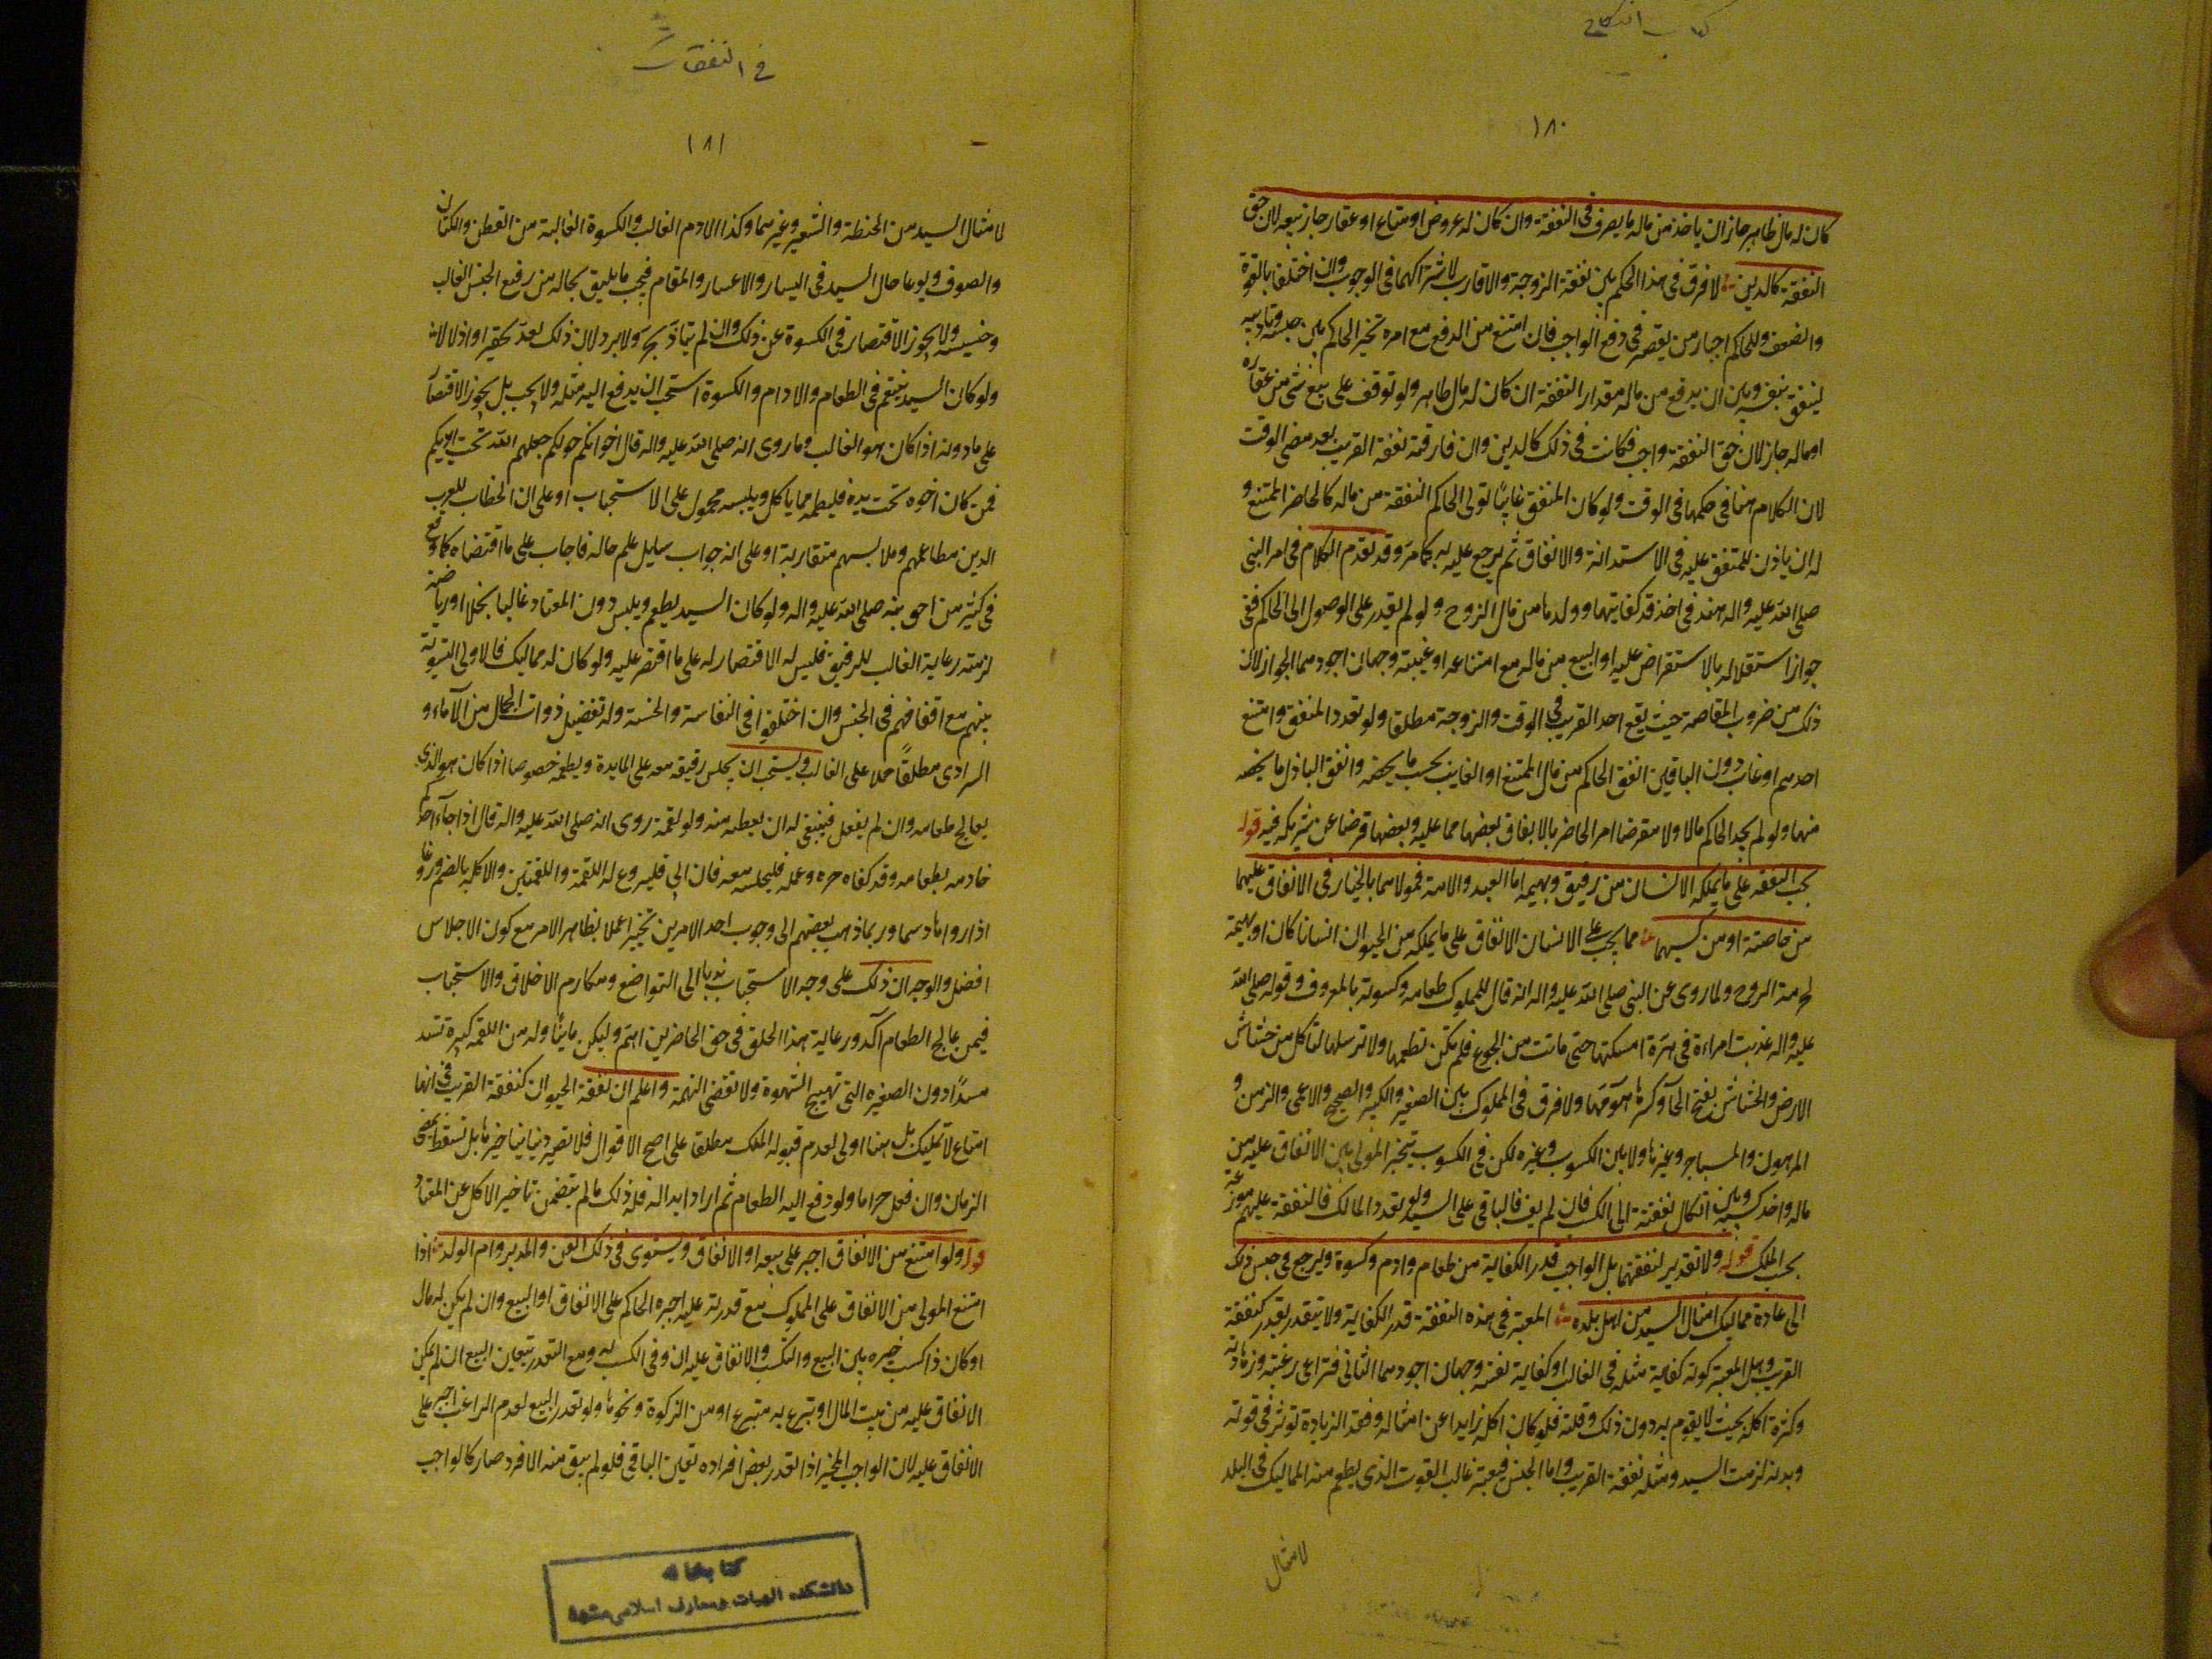 كتاب النكاح
١٨٠
كان له مال ظاهر جاز ان ياخذ من ماله ما يصرف فى النفقة وان كان له عروض او متاع او عقار جاز بيعه لان حق
النفقة كالدين لا فرق فى هذا الحكم بين نفقة الزوجة والاقارب لاشتراكهما فى الوجوب وان اختلفا بالقوة
والضعف وللحاكم اجبار من يقصر فى دفع الواجب فان امتنع من الدفع مع امره تخير الحاكم بين حبسه وتاديبه
لينفق بنفسه وبين ان يدفع من ماله مقدار النفقة ان كان له مال ظاهر ولو توقف على بيع شئ من عقاره
او ماله جاز لان حق النفقة واجب فكانت فى ذلك كالدين وان فارقته نفقة القريب بعد مضى الوقت
لان الكلام هنا فى حكمها فى الوقت ولو كان المنفق غايبًا تولى الحاكم النفقة من ماله كالحاضر الممتنع و
له ان ياذن للمنفق عليه فى الاستدانة والانفاق ثم يرجع عليه به كما مر وقد تقدم الكلام فى امر النبى
صلى الله عليه واله هند فى اخذ قدر كفايتها وولدها من مال الزوج ولو لم يقدر على الوصول الى الحاكم ففى
جواز استقلاله بالاستقراض عليه او البيع من ماله مع امتناعه او غيبته وجهان اجودهما الجواز لان
ذلك من ضروب المقاصة حيث يقع احد القريب فى الوقت والزوجة مطلقا ولو تعدد المنفق وامتنع
احدهم او غاب دون الباقين انفق الحاكم من مال الممتنع او الغايب بحسب ما يخصه وانفق الباذل ما يخصه
منها ولو لم يجد الحاكم مالا ولا مقرضا امر الحاضر بالانفاق بعضها مما عليه وبعضها قرضا عن شريكه فيه قوله
تجب النفقة على ما يملكه الانسان من رقيق وبهيمة اما العبد والامة فمولاهما بالخيار فى الانفاق عليهما
من خاصته او من كسبهما مما يجب على الانسان الانفاق على ما يملكه من الحيوان انسانا كان او بهيمة
لحرمة الروح ولما روى عن النبى صلى الله عليه واله انه قال للمملوك طعامه وكسوته بالمعروف وقوله صلى الله
عليه واله عذبت امراءة فى هرة امسكتها حتى ماتت من الجوع فلم تكن تطعمها ولا ترسلها لتاكل من خشاش
الارض والخشاش بفتح الخاء وكسرها هوامها ولا فرق فى المملوك بين الصغير والكبير والصحيح والاعمى والزمن و
المرهون والمستاجر وغيرها ولا بين الكسوب وغيره لكن فى الكسوب يتخير المولى بين الانفاق عليه من
ماله واخذ كسبه وبين اتكال نفقته الى الكسب فان لم يف فالباقى على السيد ولو تعدد المالك فالنفقة عليهم موزعة
بحسب الملك قوله ولا تقدير لنفقتهما بل الواجب قدر الكفاية من طعام وادم وكسوة ويرجع فى جنس ذلك
الى عادة مماليك امثال السيد من اهل بلده المعتبر فى هذه النفقة قدر الكفاية ولا يتقدر بقدر كنفقة
القريب وهل المعتبر كونه كفاية مثله فى الغالب او كفاية نفسه وجهان اجودهما الثانى فتراعى رغبته وزهادته
وكثرة اكله بحيث لا يقوم بدون ذلك وقلته فلو كان اكله زايدا عن امثاله وفقد الزيادة تؤثر فى قوته
وبدنه لزمت السيد ومثله نفقة القريب واما الجنس فيعتبر غالب القوت الذى يطعم منه المماليك فى البلد
لامثال
فى النفقات
١٨١
لامثال السيد من الحنطة والشعير وغيرهما وكذا الادم الغالب والكسوة الغالبة من القطن والكتان
والصوف ويراعا حال السيد فى اليسار والاعسار والمقام فيجب ما يليق بحاله من رفيع الجنس الغالب
وخسيسه ولا يجوز الاقتصار فى الكسوة عن ذلك وان لم يتاذ بحر ولا برد لان ذلك يعد تحقيرا واذلالا
ولو كان السيد يتنعم فى الطعام والادام والكسوة استحب ان يدفع اليه مثله ولا يجب بل يجوز الاقتصار
على ما دونه اذا كان هو الغالب وما روى انه صلى الله عليه واله قال اخوانكم خولكم جعلهم الله تحت ايديكم
فمن كان اخوه تحت يده فليطعمه مما ياكل ويلبسه محمول على الاستحباب او على ان الخطاب للعرب
الذين مطاعمهم وملابسهم متقاربة او على انه جواب سايل علم حاله فاجاب على ما اقتضاه كما وقع
فى كثير من اجوبته صلى الله عليه واله ولو كان السيد يطعم ويلبس دون المعتاد غالبا بخلا او رياضة
لزمته رعاية الغالب للرقيق فليس له الاقتصار له على ما اقتصر عليه ولو كان له مماليك فالاولى التسوية
بينهم مع اتفاقهم فى الجنس وان اختلفوا فى النفاسة والخسة وله تفضيل ذوات الجمال من الآماء و
السرارى مطلقًا حملا على الغالب ويستحب ان يجلس رقيقه معه على المايدة ويطعمه خصوصا اذا كان هو الذى
يعالج طعامه وان لم يفعل فينبغى له ان يعطيه منه ولو لقمة روى انه صلى الله عليه واله قال اذا جآء احدكم
خادمه بطعامه وقد كفاه حره وعمله فليجلسه معه فان ابى فليروغ له اللقمة واللقمتين والاكله بالضم وروغها
اذا رواها دسما وربما ذهب بعضهم الى وجوب احد الامرين تخييرا عملا بظاهر الامر مع كون الاجلاس
افضل والوجه ان ذلك على وجه الاستحباب ندبا الى التواضع ومكارم الاخلاق والاستحباب
فيمن عالج الطعام آكد ورعاية هذا الخلق فى حق الحاضرين اهتم وليكن ما يناوله من اللقمة كبيرة تسد
مسدًا دون الصغيره التى تهيج الشهوة ولا تقضى النهمة واعلم ان نفقة الحيوان كنفقة القريب فى انها
امتاع لا تمليك بل هنا اولى لعدم قبوله الملك مطلقا على اصح الاقوال فلا تصير دينا بتاخيرها بل تسقط بمضى
الزمان وان فعل حراما ولو دفع اليه الطعام ثم اراد ابداله فله ذلك ما لم يتضمن تاخير الاكل عن المعتاد
قوله ولو امتنع من الانفاق اجبر على بيعه او الانفاق ويستوى فى ذلك القن والمدبر وام الولد اذا
امتنع المولى من الانفاق على المملوك مع قدرته عليه اجبره الحاكم على الانفاق او البيع وان لم يكن له مال
او كان ذا كسب خيره بين البيع والتكسب والانفاق عليه ان وفى الكسب له ومع التعذر يتعين البيع ان لم يمكن
الانفاق عليه من بيت المال او تبرع به متبرع او من الزكوة ونحوها ولو تعذر البيع لعدم الراغب اجبر على
الانفاق عليه لان الواجب المخير اذا تعذر بعض افراده تعين الباقى فلو لم يبق منه الا فرد صار كالواجب
كتابخانه
دانشكده الهيات و معارف اسلامى مشهد